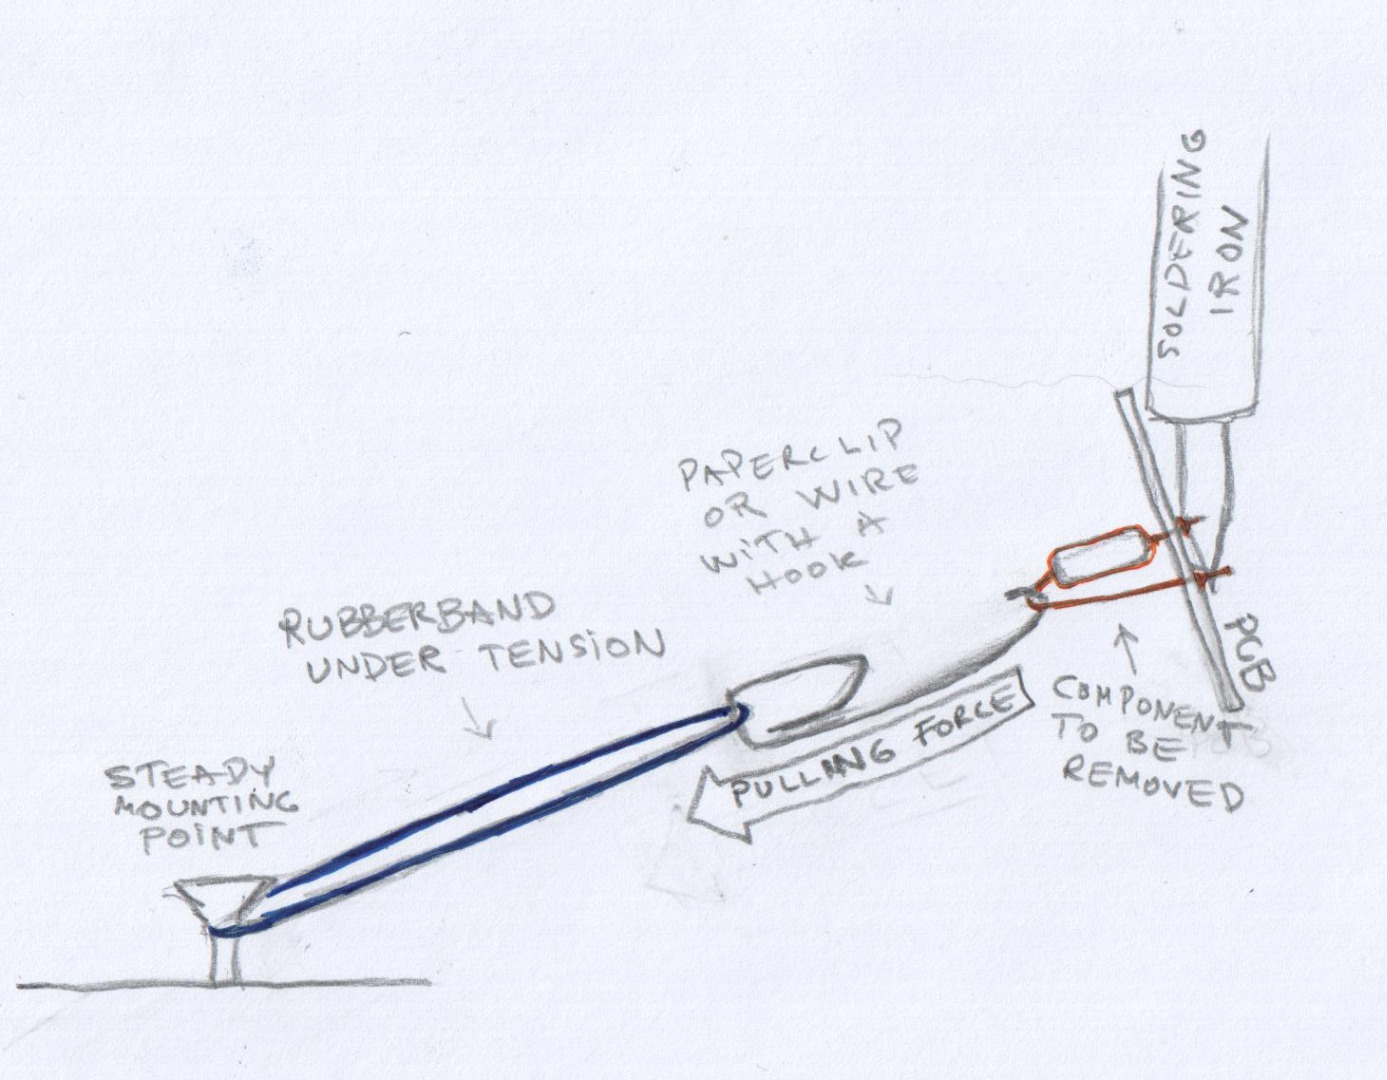 SOLDERING
IRON
PAPERCLIP
OR WIRE
WITH A
HOOK
RUBBERBAND
UNDER TENSION
PCB
COMPONENT
TO BE
REMOVED
PULLING FORCE
STEADY
MOUNTING
POINT